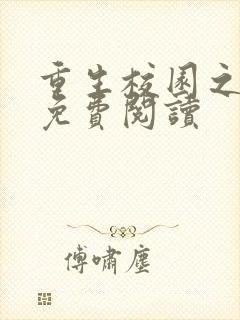 重生校园之
免費閱讀
傅嘯塵